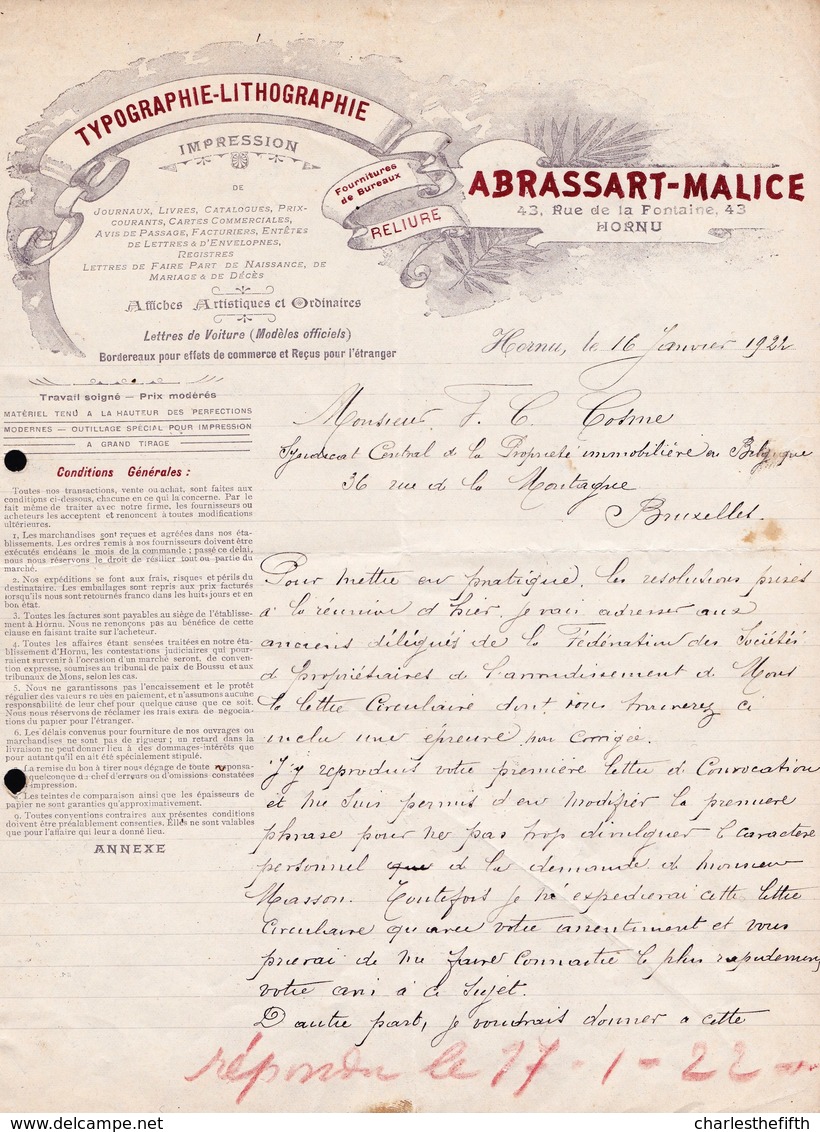 TYPOGRAPHIE-LITHOGRAPHIE
IMPRESSION
DE
JOURNAUX, LIVRES, CATALOGUES, PRIX-
COURANTS, CARTES COMMERCIALES,
AVIS DE PASSAGE, FACTURIERS, ENTÊTES
DE LETTRES & D'ENVELOPNES,
REGISTRES
LETTRES DE FAIRE PART DE NAISSANCE, DE
MARIAGE & DE DÉCÈS
Affiches Artistiques et Ordinaires
Lettres de Voiture (Modèles officiels)
Bordereaux pour effets de commerce et Reçus pour l'étranger
Fournitures
de Bureaux
RELIURE
ABRASSART-MALICE
43, Rue de la Fontaine, 43
HORNU
Travail soigné — Prix modérés
MATÉRIEL TENU A LA HAUTEUR DES PERFECTIONS
MODERNES — OUTILLAGE SPÉCIAL POUR IMPRESSION
A GRAND TIRAGE
Conditions Générales :
Toutes nos transactions, vente ou achat, sont faites aux
conditions ci-dessous, chacune en ce qui la concerne. Par le
fait même de traiter avec notre firme, les fournisseurs ou
acheteurs les acceptent et renoncent à toutes modifications
ultérieures.
1. Les marchandises sont reçues et agréées dans nos éta-
blissements. Les ordres remis à nos fournisseurs doivent être
exécutés endéans le mois de la commande ; passé ce délai,
nous nous réservons le droit de résilier tout ou partie du
marché.
2. Nos expéditions se font aux frais, risques et périls du
destinataire. Les emballages sont repris aux prix facturés
lorsqu'ils nous sont retournés franco dans les huits jours et en
bon état.
3. Toutes les factures sont payables au siège de l'établisse-
ment à Hornu. Nous ne renonçons pas au bénéfice de cette
clause en faisant traite sur l'acheteur.
4. Toutes les affaires étant sensées traitées en notre éta-
blissement d'Hornu, les contestations judiciaires qui pour-
raient survenir à l'occasion d'un marché seront, de conven-
tion expresse, soumises au tribunal de paix de Boussu et aux
tribunaux de Mons, selon les cas.
5. Nous ne garantissons pas l'encaissement et le protêt
régulier des valeurs remises en paiement, et n'assumons aucune
responsabilité de leur chef pour quelque cause que ce soit.
Nous nous réservons de réclamer les frais extra de négocia-
tions du papier pour l'étranger.
6. Les délais convenus pour fourniture de nos ouvrages ou
marchandises ne sont pas de rigueur ; un retard dans la
livraison ne peut donner lieu à des dommages-intérêts que
pour autant qu'il en ait été spécialement stipulé.
La remise du bon à tirer nous dégage de toute responsa-
quelconque du chef d'erreurs ou d'omissions constatées
impression.
8. Les teintes de comparaison ainsi que les épaisseurs de
papier ne sont garanties qu'approximativement.
9. Toutes conventions contraires aux présentes conditions
doivent être préalablement consenties. Elles ne sont valables
que pour l'affaire qui leur a donné lieu.
ANNEXE
Hornu, le 16 Janvier 1922
Monsieur F. C. Cosme
Syndicat Central de la Propriété immobilière en Belgique
36 rue de la Montagne
Bruxelles.
Pour mettre en pratique, les resolutions prises
à la réunion d'hier, je vais adresser aux
anciens délégués de la Fédération des Sociétés
de propriétaires de l'arrondissement de Mons
la lettre Circulaire dont vous trouverez ci
inclu une épreuve non corrigée.
J'y reproduis votre première lettre de Convocation
et me suis permis d'en modifier la première
phrase pour ne pas trop divulguer le caractère
personnel que de la demande de monsieur
Masson. Toutefois je n'expedierai cette lettre
Circulaire qu'avec votre assentiment et vous
prierai de me faire connaitre le plus rapidement
votre avis à ce sujet.
D'autre part, je voudrais donner a cette
répondu le 17-1-22
charlesthefifth